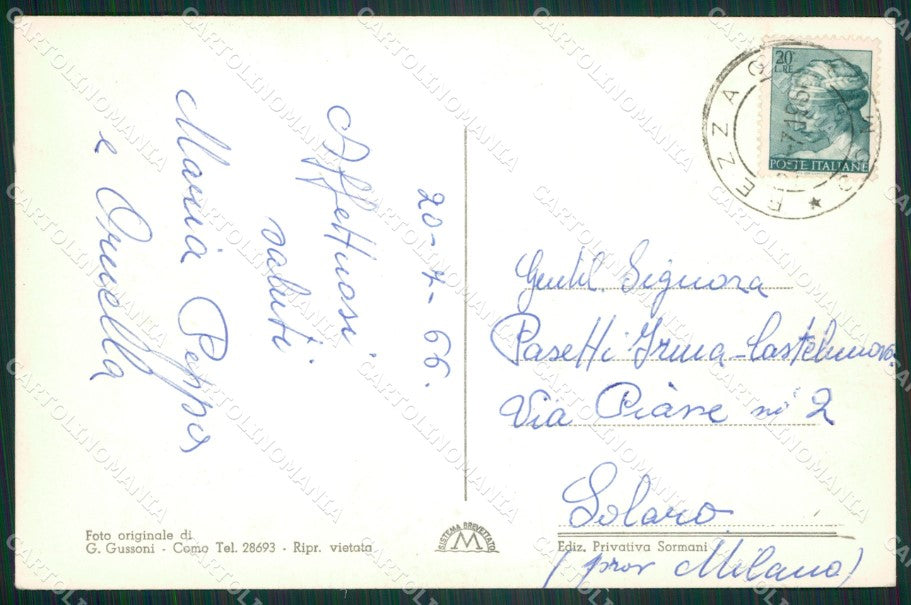 20-7-66.
Affettuosi
saluti
Maria Peppa
e Ornella
Gentil. Signora
Pasetti Irma-Castelnovo
Via Piave n° 2
Solaro
(prov Milano)
20 LIRE
POSTE ITALIANE
Foto originale di
G. Gussoni - Como Tel. 28693 - Ripr. vietata
SISTEMA BREVETTATO
M
Ediz. Privativa Sormani
CARTOLINOMANIA